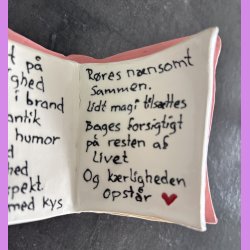 t på
ighed
i brand
antik
humor
d
hed
spekt.
med kys
Røres nænsomt
sammen.
Lidt magi tilsættes
Bages forsigtigt
på resten af
livet
Og kærligheden
opstår